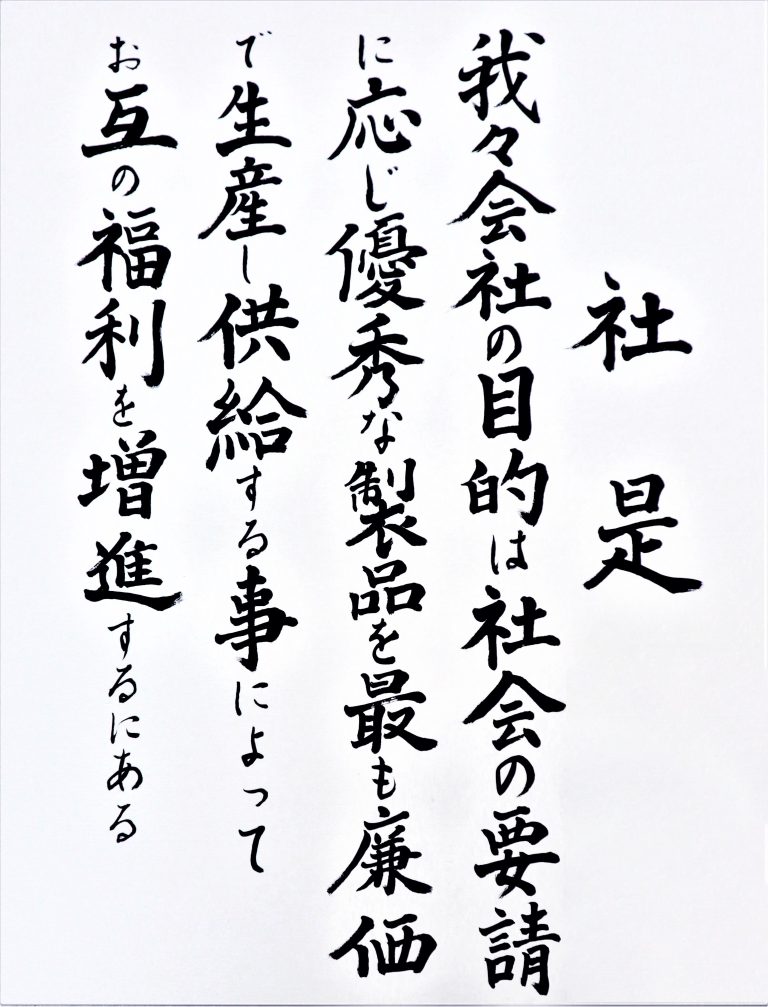 社是
我々会社の目的は社会の要請
に応じ優秀な製品を最も廉価
で生産し供給する事によって
お互の福利を増進するにある